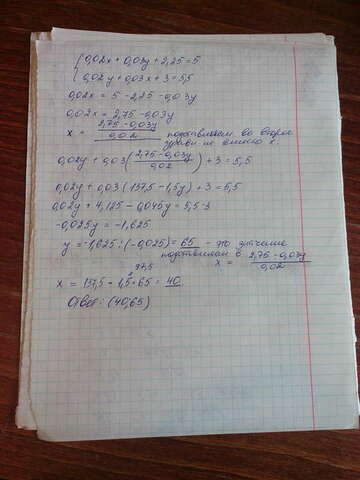 0,02x + 0,03y + 2,25 = 5
0,02y + 0,03x + 3 = 5,5
0,02x = 5 - 2,25 - 0,03y
0,02x = 2,75 - 0,03y
x = 2,75 - 0,03y / 0,02 подставляем во второе
x
0,02y + 0,03 (2,75 - 0,03y / 0,02) + 3 = 5,5
0,02y + 0,03 (137,5 - 1,5y) + 3 = 5,5
0,02y + 4,125 - 0,045y = 5,5-3
-0,025y = -1,625
y = -1,625 : (-0,025) = 65 - это значение
подставляем в 2,75 - 0,03y / 0,02
x =
97,5
x = 137,5 - 1,5*65 = 40
Ответ: (40,65)